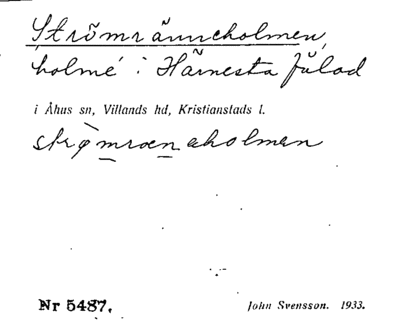 Strömränneholmen,
holme i Härnesta fälad
i Åhus sn, Villands hd, Kristianstads l.
strømrænəholmən
Nr 5487. John Svensson. 1933.